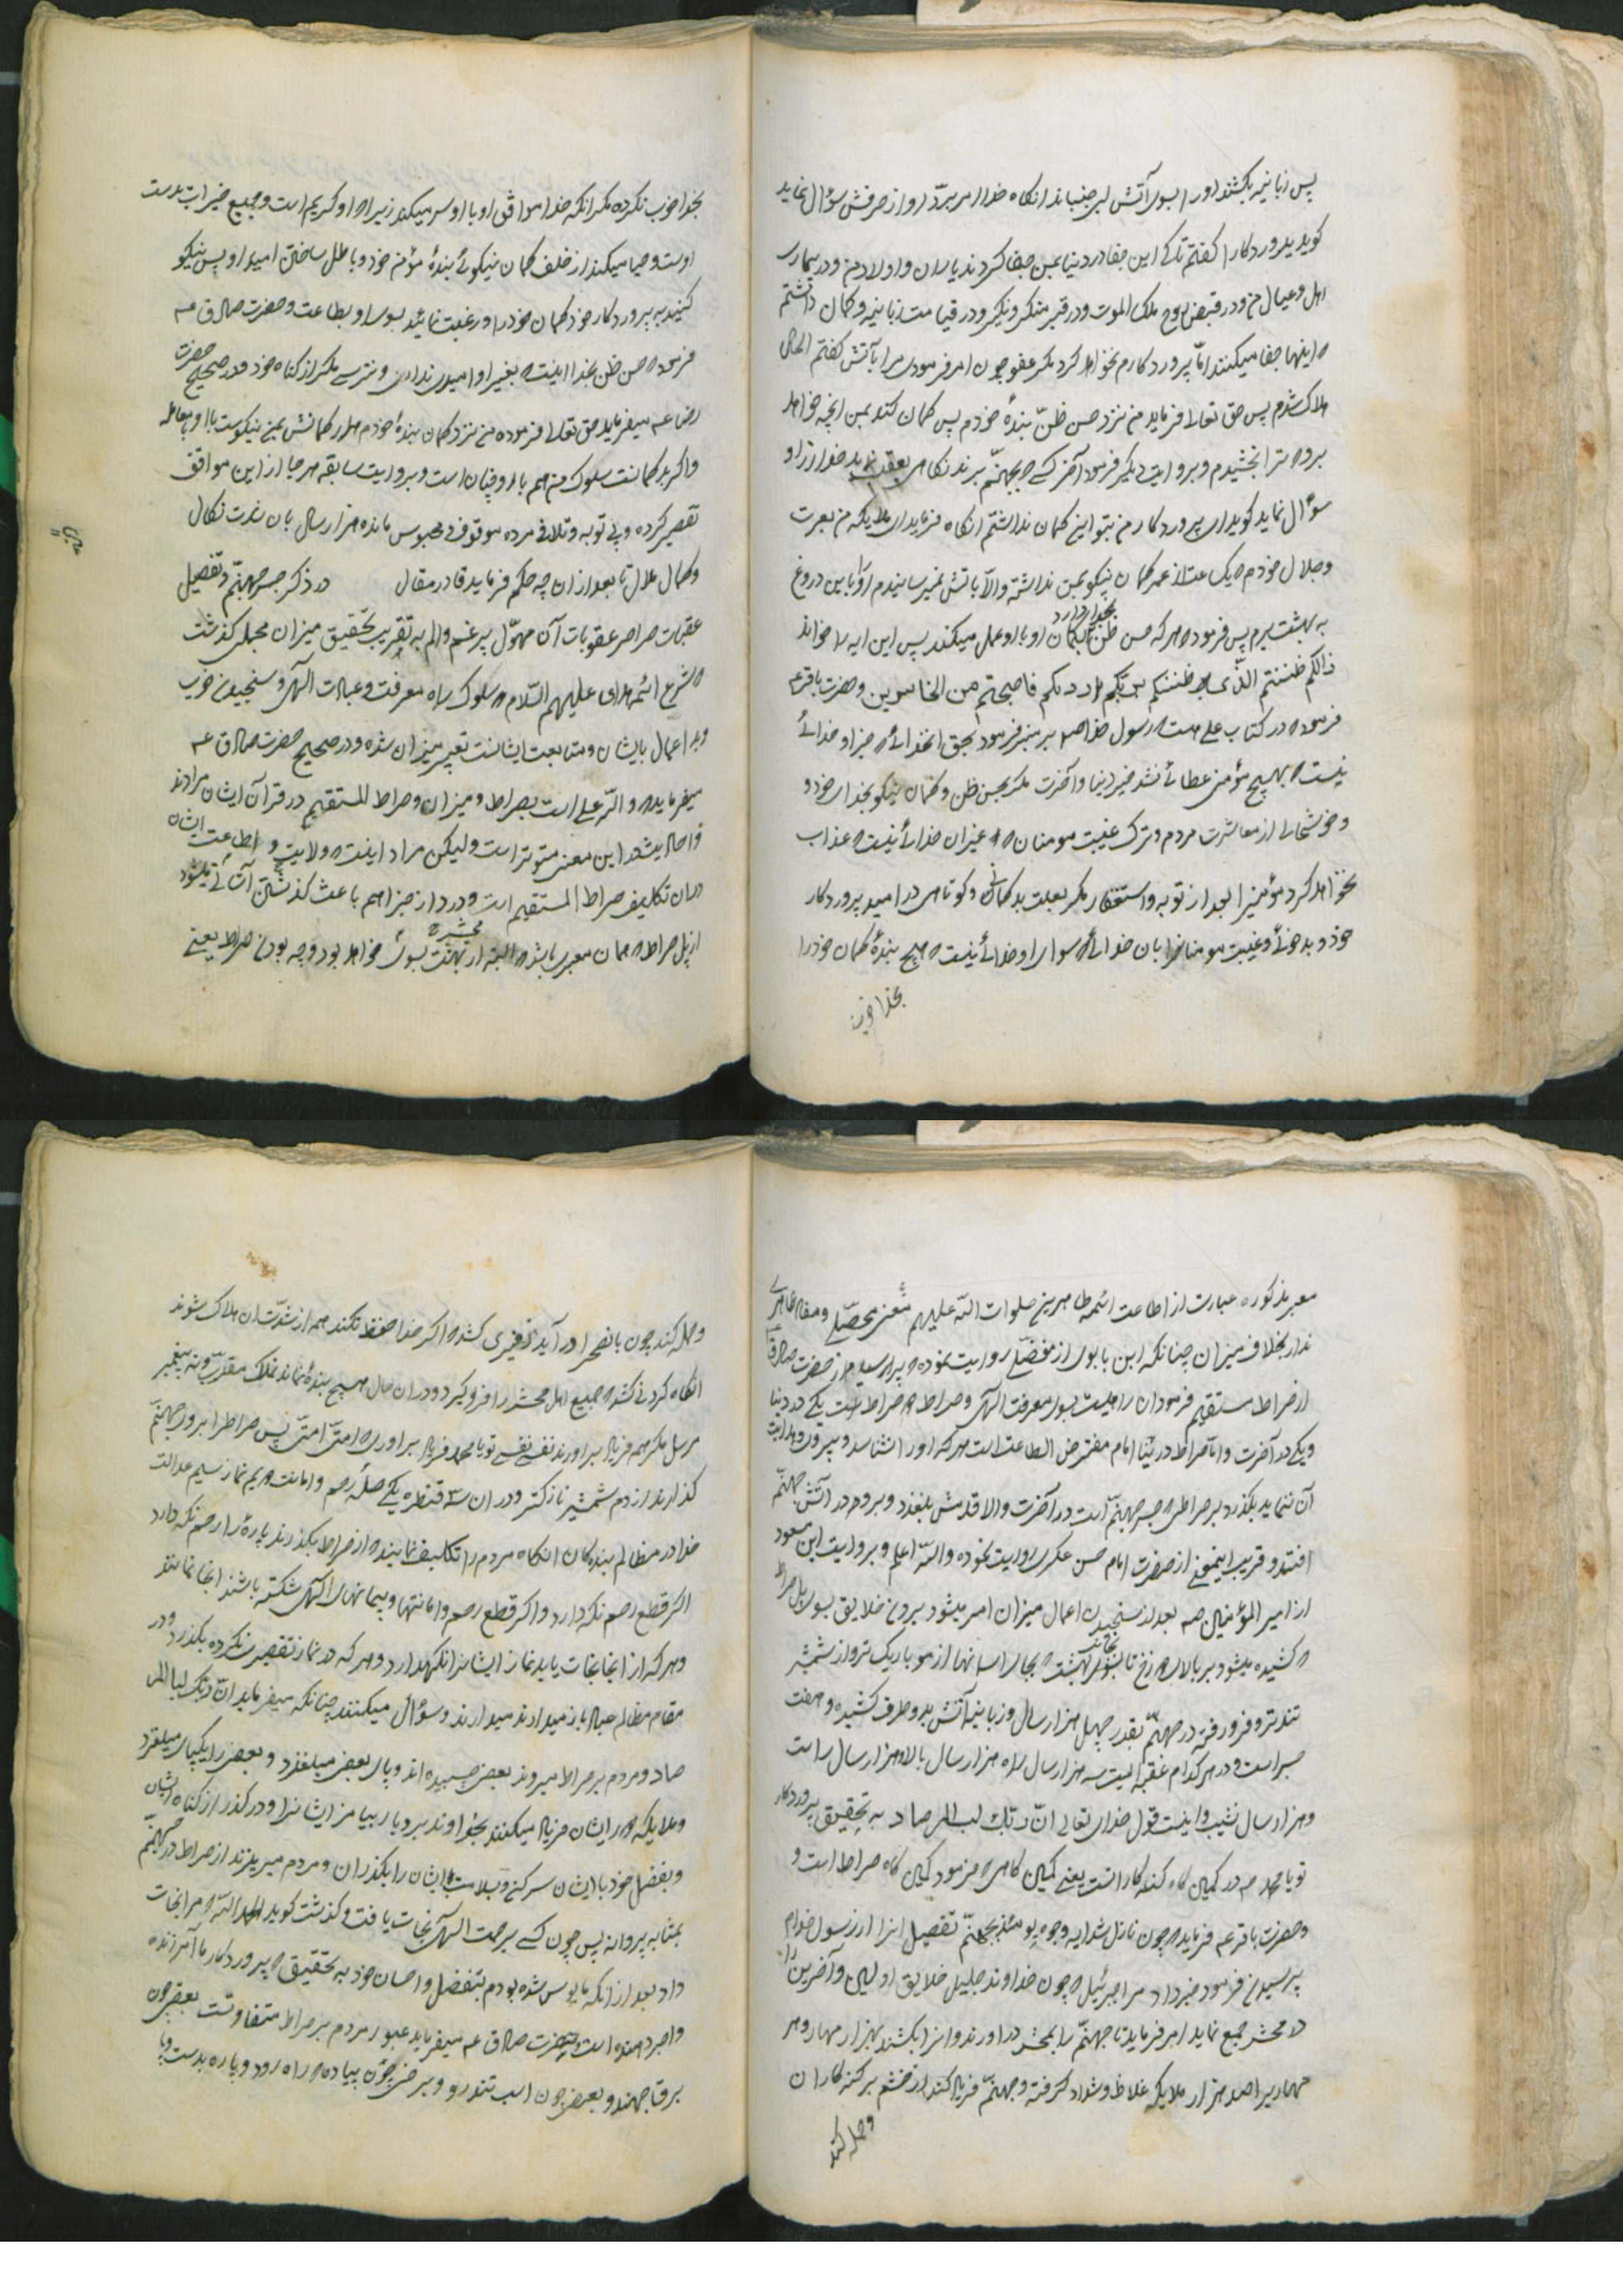 پس زبانیه بکشند او را بسوی آتش لب جنبانداند انکاه خدا امر برد او از حرفش سؤال نماید
کوید پروردکارا کفتم تا کی این جفا در دنیا بمن جفا کردند یاران و اولاد من و در بیماری
اهل و عیال من و در قبض روح ملک الموت و در قبر منکر و نکیر و در قیامت زبانیه و کمان داشتم
که اینها جفا میکنند امّا پروردکارم نخواهد کرد مکر عفو چون امر فرمودی مرا بآتش کفتم الحال
هلاک شدم پس حق تعالی فرماید من نزد حسن ظنّ بندهٔ خودم پس کمان کند بمن آنچه خواهد
برو که ترا بخشیدم و بروایت دیکر فرمود آخر کسی که بجهنّم برند نکاهی بعقب نماید خدا از او
سؤال نماید کوید ای پروردکار من بتو این کمان نداشتم انکاه فرماید ای ملایکه من بعزت
و جلال خودم که یکساعت از عمر کمان نیکو بمن نداشته و الّا باتش نمیرسانیدم او را با این دروغ
به بهشت برم پس فرمود که هر که حسن ظن بخدا دارد بکمان او با او عمل میکند پس این ایه را خواند
ذالکم ظننتم الّذی ظننتم بربّکم اردیکم فاصبحتم من الخاسرین و حضرت باقر ع
فرمود که در کتاب علی هست که رسول خدا ص بر منبر فرمود بحق انخدائی که جز او خدائی
نیست که بهیچ مؤمنی عطائی نشد خیر دنیا و آخرت مکر بحسن ظن و کمان نیکو بخدای خود و
و خوشخالی از معاشرت مردم و ترک غیبت مومنان که غیر ان خدائی نیست که عذاب
نخواهد کرد مؤمنیرا بعد از توبه و استغفار مکر بعلت بدکمانی و کوتاهی در امید پروردکار
خود و بدخوئی و غیبت مومنان بان خدائی که سوای او خدائی نیست که هیچ بندهٔ کمان خود را
بخدا خوب
بخدا خوب نکرده مکر انکه خدا موافق او با او سر میکند زیرا که او کریم است و جمیع خیرات بدست
اوست و حیا میکند از خلف کمان نیکوئی بندهٔ مؤمن خود و باطل ساختن امید او پس نیکو
کنید به پروردکار خود کمان خود را و رغبت نمائید بسوی او بطاعت و حضرت صادق ع
فرموده حسن ظن بخدا اینست که بغیر او امیدی نداری و نترسی مکر از کناه خود و در صحیح حضرت
رضا ع میفرماید حق تعالی فرموده من نزد کمان بندهٔ خودم هر کمانش بمن نیکوست با او بمعامله
و اکر بد کمانست سلوک من هم با او چنان است و بروایت سابقه مرجا از این موافق
تقصیر کرده و بی توبه و تلافی مرده موقوفی محبوس مانده هزار سال بان شدت نکال
و کمال ملال تا بعد از ان چه حکم فرماید قادر مقال در ذکر جسر جهنّم و تفصیل
عقبات صراط عقوبات آن مهوّل پر غم و الم به تقریب تحقیق میزان مجملی کذشت
که شرع ائمه هدی علیهم السّلام و سلوک راه معرفت و عبادت الهی و سنجیدن خوب
و بد اعمال بایشان و متابعت ایشانست تعبیر بمیزان شده و در صحیح حضرت صادق ع
میفرماید که والله علی است بصراط و میزان و صراط المستقیم در قرآن ایشان مرادند
و احادیث در این معنی متوتر است ولیکن مراد اینست که ولایت و اطاعت ایشان
در ان تکلیف صراط المستقیم است و در دار جزا هم باعث کذشتن آسانی میشود
از پل صراط که همان معبری باشد که البته از محشر به بهشت بسوی خواهد بود و چه بودن صراط یعنی
معبر مذکوره عبارت از اطاعت ائمه طاهرین صلوات الله علیهم معنی محصّلی و مفاد ظاهری
ندارد بخلاف میزان چنانکه ابن بابویه از مفضّل روایت نموده که پرسیدم از حضرت صادق
از صراط مستقیم فرمود ان راهیست بسوی معرفت الهی و صراط دو صراطست یکی در دنیا
و یکی در آخرت و امّا صراط در دنیا امام مفترض الطاعت است هر که او را شناسد و پیروی هدایت
آن نماید بکذرد بر صراطی که جسر جهنّم است در آخرت و الا قدمش بلغزد و برود در آتش جهنّم
افتد و قریب اینمعنی از حضرت امام حسن عسکری روایت نموده و الله اعلم و بروایت ابن مسعود
از امیر المؤمنین ص بعد از سنجیدن اعمال میزان امر میشود بردن خلایق بسوی پل صراط
که کشیده میشود بر بالای دوزخ تا بسوی بهشت که بجای اسانها از مو باریک تر و از شمشیر
تندتر و فرو رفته در جهنّم بقدر چهل هزار سال و زبانیه آتش بدو طرف کشیده و هفت
جسر است و در هر کدام عقبه ایست سه هزار سال راه هزار سال بالا و هزار سال راست
و هزار سال نشیب و اینست قول خدای تعالی انّ ربّک لبالمرصاد به تحقیق پروردکار
تو یا محمد ص در کمین کاه کنه کارانست یعنی کمین کاهی که فرمود کمین کاه صراط است و
و حضرت باقر ع فرماید که چون نازل شد ایه و جیء یومئذ بجهنّم تفصیل انرا از رسول خدا ص
پرسیدند فرمود خبر داد مرا جبرئیل که چون خداوند جلیل خلایق اولین و آخرین را
در محشر جمع نماید امر فرماید تا جهنّم را بمحشر در اورند و انرا بکشند بهزار مهار و هر
مهاریرا صد هزار ملایکه غلاظ و شداد کرفته و جهنّم فریاد کند از خشم بر کنه کاران
و حمله کند
و حمله کند چون بانصحرا در آید زفیری کشد که اکر خدا حفظ نکند همه از شدّت ان هلاک شوند
انکاه کردنی کشد که جمیع اهل محشر را فرو کیرد و در ان حال هیچ بندهٔ نماند نه ملک مقرّب و نه پیغمبر
مرسل مکر همه فریاد براورند نفسی نفسی تو یا محمد فریاد براوری که امتی امتی پس صراطرا بر روی جهنّم
کذارند از دم شمشیر نازکتر و در ان سه قنطره یکی صلهٔ رحم و امانت دویم نماز سیم عدالت
خدا در مظالم بنده کان انکاه مردم را تکلیف نمایند که از صراط بکذرند پارهٔ را رحم نکه دارد
اکر قطع رحم نکه دارد و اکر قطع رحم و امانتها و پیمانهای الهی شکسته باشند انجا نمانند
و هر که از انجا نجات یابد نماز ایشانرا نکهدارد و هر که در نماز تقصیر نکرده بکذرد و در
مقام مظالم عباد باز میدارند و سؤال میکنند چنانکه میفرماید انّ ربّک لبالمر
صاد و مردم بر صراط میروند بعضی چسبیده اند و پای بعضی میلغزد و بعضی را یکپای میلغزد
و ملایکه دور ایشان فریاد میکنند بخداوند بردبار بیامرز ایشانرا و درکذر از کناه ایشان
و بفضل خود با ایشان سر کن و بسلامت ایشان را بکذران و مردم میریزند از صراط در جهنّم
بمثابه پروانه پس چون کسی برحمت الهی نجات یافت و کذشت کوید الحمد الله که مرا نجات
داد بعد از آنکه مایوس شده بودم بتفضل و احسان خود به تحقیق که پروردکار ما آمرزنده
و اجر دهنده است و حضرت صادق ع میفرماید عبور مردم بر صراط متفاوتست بعضی چون
برق جهنده و بعضی چون اسب تندرو و برخی چون پیاده که راه رود و پاره بدست و پا